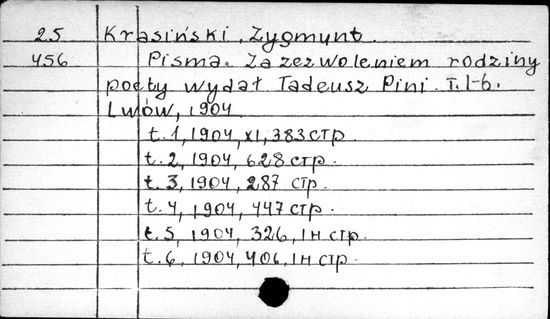 25 Krasiński, Zygmunt.
456 Pisma. Za zezwoleniem rodziny
poety wydał Tadeusz Pini. T. 1-6.
Lwów, 1904.
t. 1, 1904, XI, 383 стр.
t. 2, 1904, 628 стр.
t. 3, 1904, 287 стр.
t. 4, 1904, 447 стр.
t. 5, 1904, 326, 1н стр.
t. 6, 1904, 406, 1н стр.